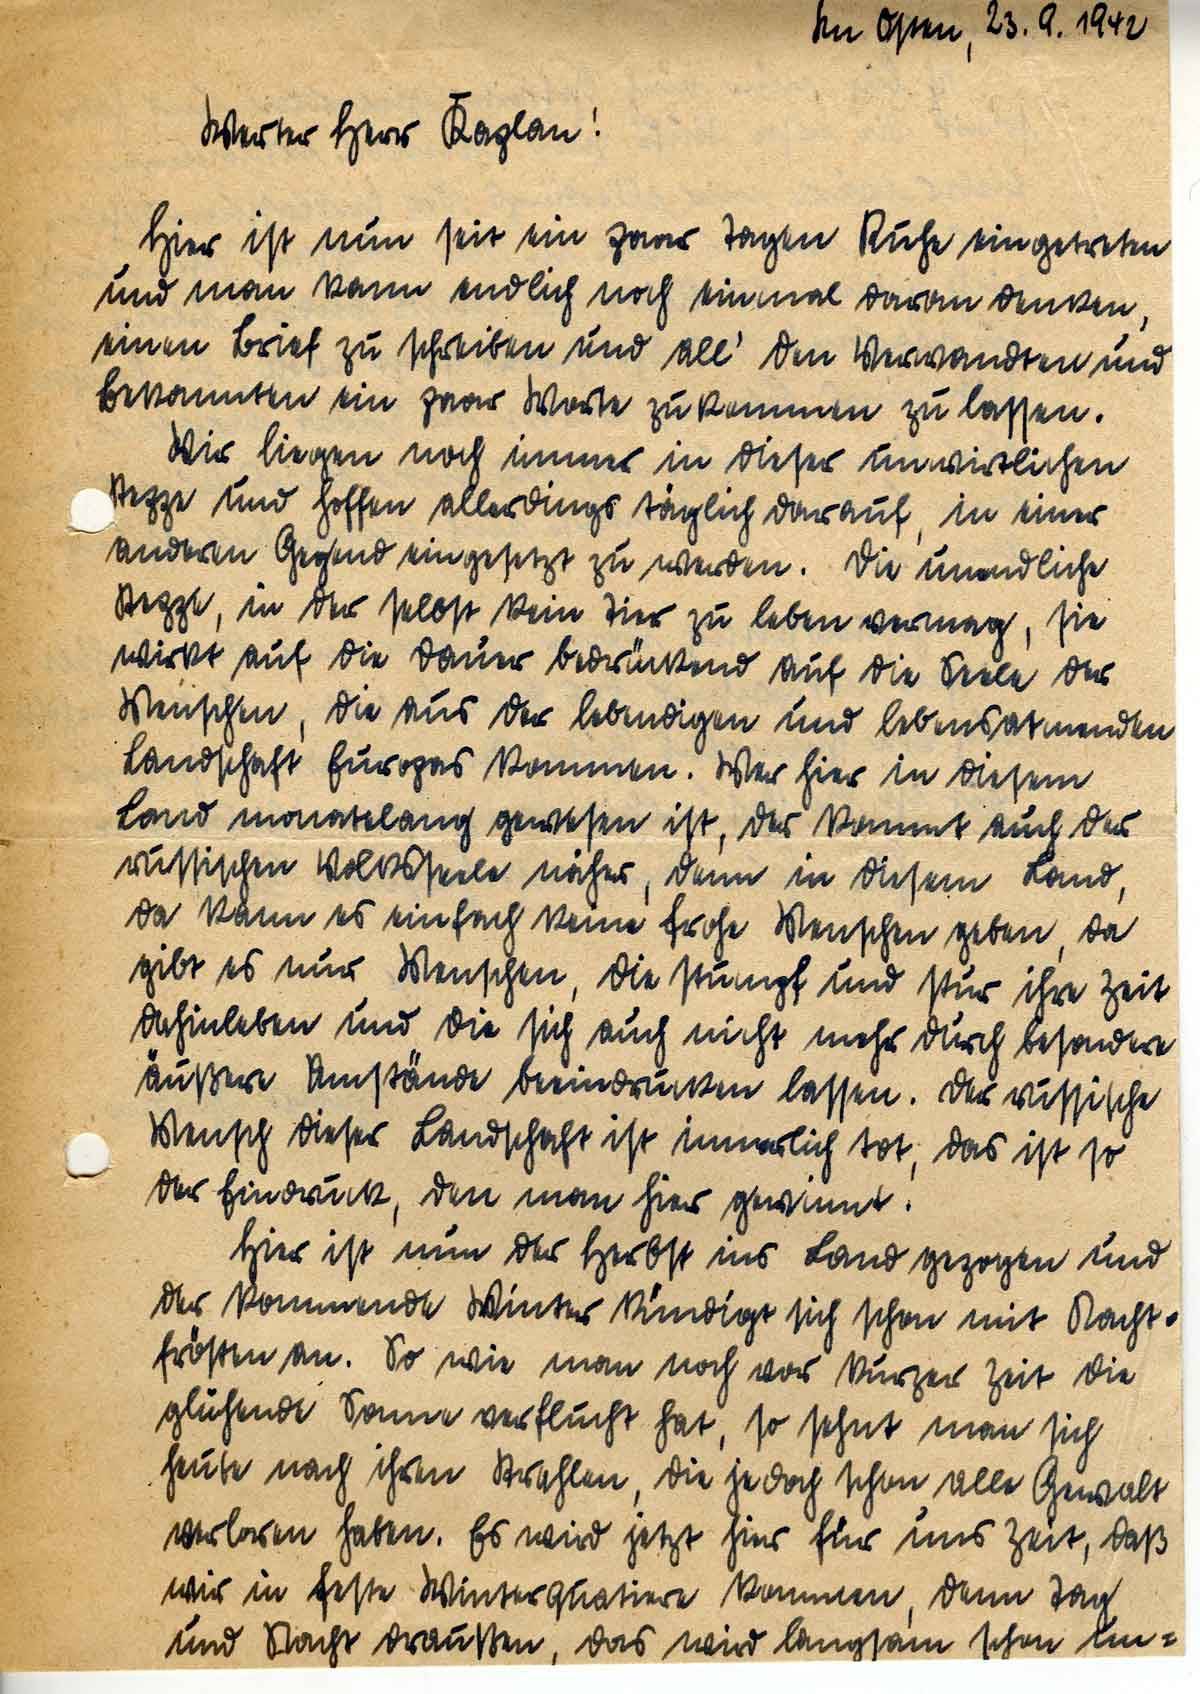 Im Osten, 23.9.1942
Werter Herr Kaplan!
Hier ist nun seit ein paar Tagen Ruhe eingetreten
und man kann endlich noch einmal daran denken,
einen Brief zu schreiben und all' den Verwandten und
Bekannten ein paar Worte zukommen zu lassen.
Wir liegen noch immer in dieser unwirtlichen
Steppe und hoffen allerdings täglich darauf, in einer
anderen Gegend eingesetzt zu werden. Die unendliche
Steppe, in der selbst kein Tier zu leben vermag, sie
wirkt auf die Dauer bedrückend auf die Seele der
Menschen, die aus der lebendigen und lebensatmenden
Landschaft Europas kommen. Wer hier in diesem
Land monatelang gewesen ist, der kommt auch der
russischen Volksseele näher, denn in diesem Land,
da kann es einfach keine frohe Menschen geben, da
gibt es nur Menschen, die stumpf und stur ihre Zeit
dahinleben und die sich auch nicht mehr durch besondere
äußere Umstände beeindrucken lassen. Der russische
Mensch dieser Landschaft ist innerlich tot, das ist so
der Eindruck, den man hier gewinnt.
Hier ist nun der Herbst ins Land gezogen und
der kommende Winter kündigt sich schon mit Nacht-
frösten an. So wie man noch vor kurzer Zeit die
glühende Sonne verflucht hat, so sehnt man sich
heute nach ihren Strahlen, die jedoch schon alle Gewalt
verloren haben. Es wird jetzt hier für uns Zeit, daß
wir in feste Winterquatiere kommen, denn Tag
und Nacht draußen, das wird langsam schon un=